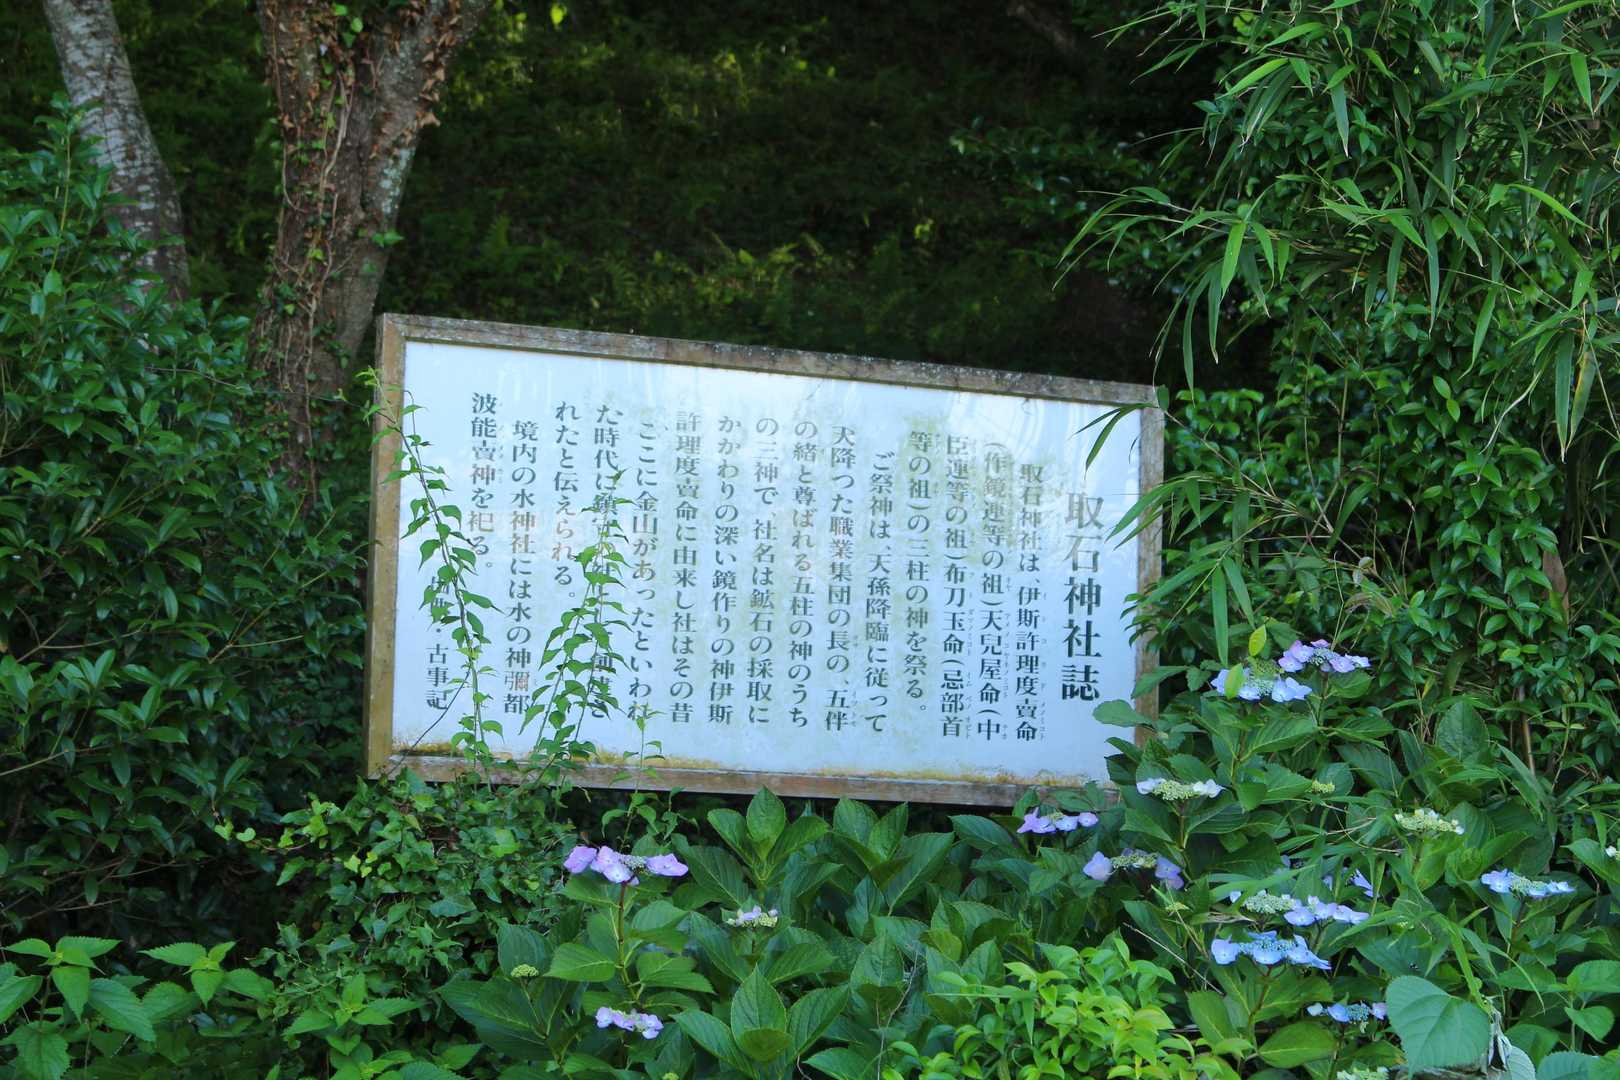 取石神社誌
取石神社は、伊斯許理度賣命
(作鏡連等の祖)天兒屋命(中
臣連等の祖)布刀玉命(忌部首
等の祖)の三柱の神を祭る。
ご祭神は、天孫降臨に従って
天降つた職業集団の長の、五伴
の緒と尊ばれる五柱の神のうち
の三神で、社名は鉱石の採取に
かかわりの深い鏡作りの神伊斯
許理度賣命に由来し社はその昔
ここに金山があったといわれ
た時代に鎮
れたと伝えられる。
境内の水神社には水の神彌都
波能賣神を祀る。
・古事記